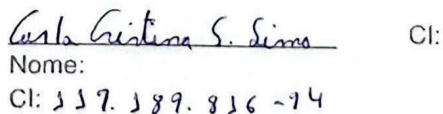 Carla Cristina S. Lima CI:
Nome:
CI: 117.189.816-94